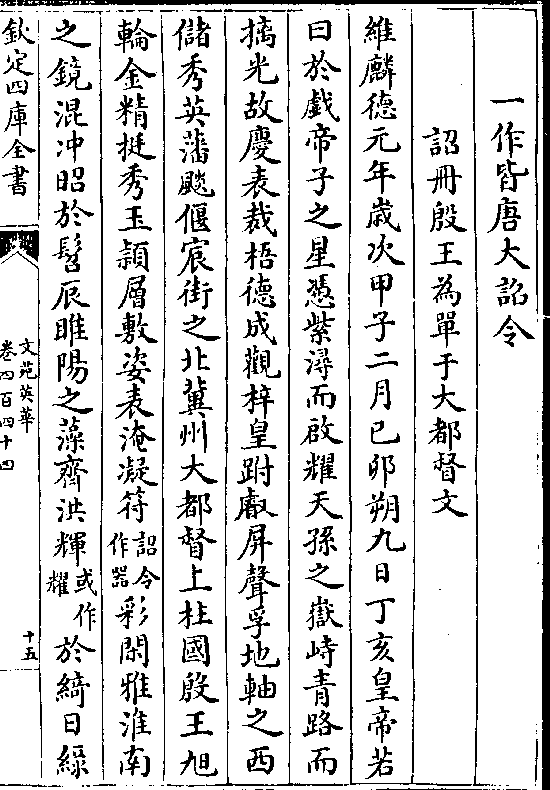 一作皆唐大詔令
詔冊殷王為單于大都督文
維麟德元年歲次甲子二月已卯朔九日丁亥皇帝若
曰於戲帝子之星憑紫潯而啟耀天孫之嶽峙青路而
摛光故慶表裁梧德成觀梓皇跗叡屏聲孚地軸之西
儲秀英藩飈偃宸街之北冀州大都督上柱國殷王旭
輪金精挺秀玉頴層敷姿表淹凝符詔令作器彩閑雅淮南
之鏡混冲昭於髫辰睢陽之藻齊洪輝或作耀於綺日緑
欽定四庫全書
文苑英華
卷四百四十四
十五